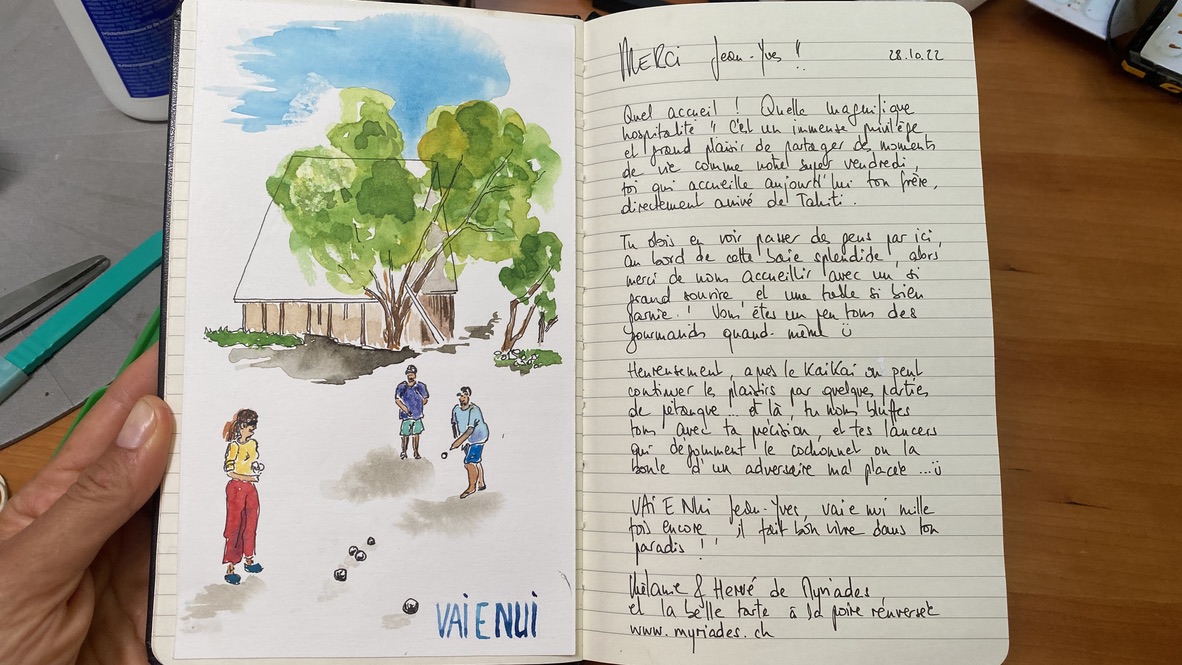 VAIENUI
MERCi Jean-Yves !!
28.10.22
Quel accueil ! Quelle magnifique
hospitalité !! C'est un immense privilège
et grand plaisir de partager ces moments
de vie comme notre super vendredi,
toi qui accueille aujourd'hui ton frère,
directement arrivé de Tahiti.
Tu dois en voir passer de gens par ici,
au bord de cette baie splendide, alors
merci de nous accueillir avec un si
grand sourire et une table si bien
garnie ! Vous êtes un peu tous des
gourmands quand-même ü
Heureusement, après le KaiKai on peut
continuer les plaisirs par quelques parties
de pétanque ... et là, tu nous bluffes
tous avec ta précision, et tes lancers
qui dégomment le cochonnet ou la
boule d'un adversaire mal placée ...ü
VAI E NUI Jean-Yves, vai e nui mille
fois encore, il fait bon vivre dans ton
paradis !!
Mélanie & Hervé de Myriades
et la belle tarte à la poire renversée
www.myriades.ch